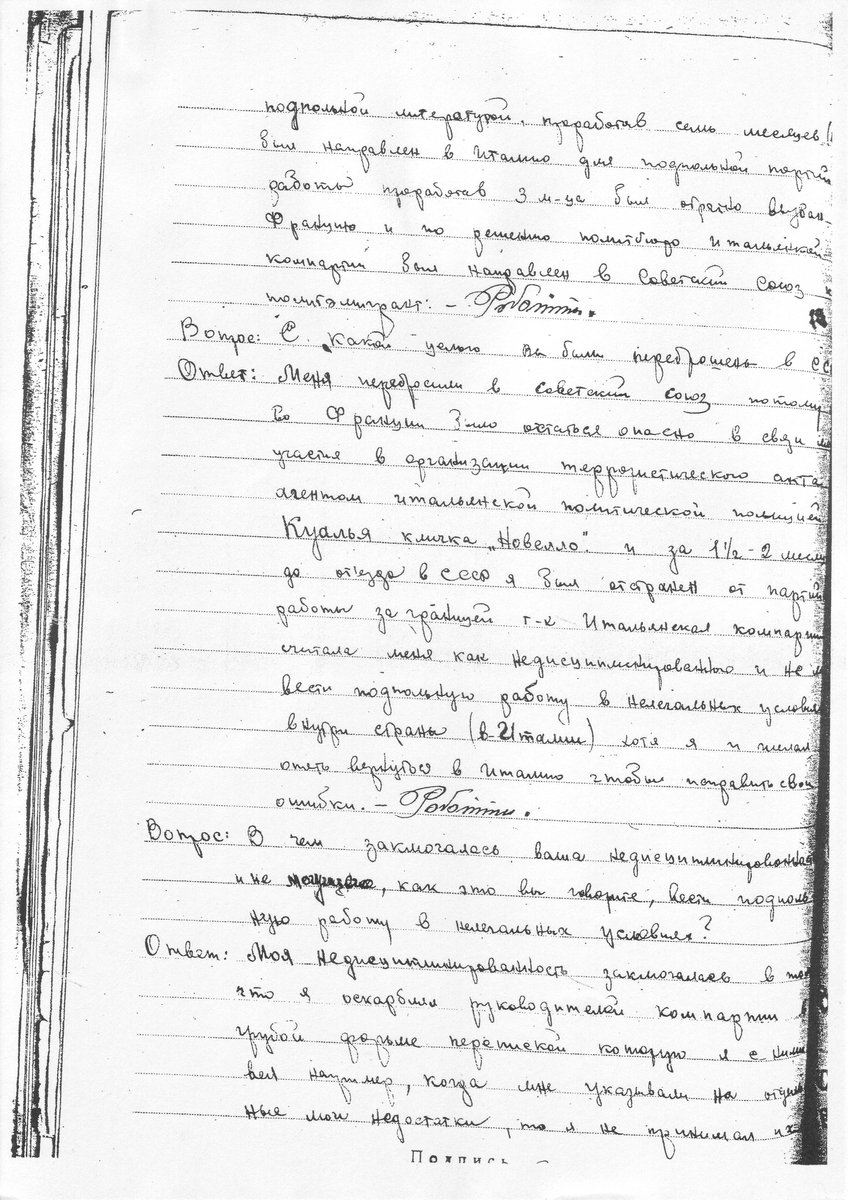 подпольной литературой, проработав семь месяцев (
был направлен в Италию для подпольной партий
работы проработав 3 м-ца был обратно вызван
Францию и по решению политбюро Итальянской
компартий был направлен в Советский Союз к
политэмигрант: – Роботти.
Вопрос: С какой целью вы были переброшены в СС
Ответ: Меня перебросили в Советский Союз потому
Во Франции было остаться опасно в связи м
участия в организации террористического акта
агентом итальянской политической полицией
Куалья кличка „Новелло". и за 1½-2 меся
до от'езда в СССР я был отстранен от партий
работы за границей т-к Итальянская компарти
считала меня как недисциплинированного и не м
вести подпольную работу в нелегальных услови
внутри страны (в Италии) хотя я и желал
опять вернуться в Италию чтобы исправить свои
ошибки. – Роботти.
Вопрос: В чем заключалась ваша недисциплинированнос
и не, как это вы говорите, вести подполь
ную работу в нелегальных условиях?
Ответ: Моя недисциплинированность заключалась в том
что я оскорблял руководителей компартии в
грубой форме перепиской которую я с ними
вел например, когда мне указывали на отдель
ные мои недостатки, то я не принимал их
Подпись –